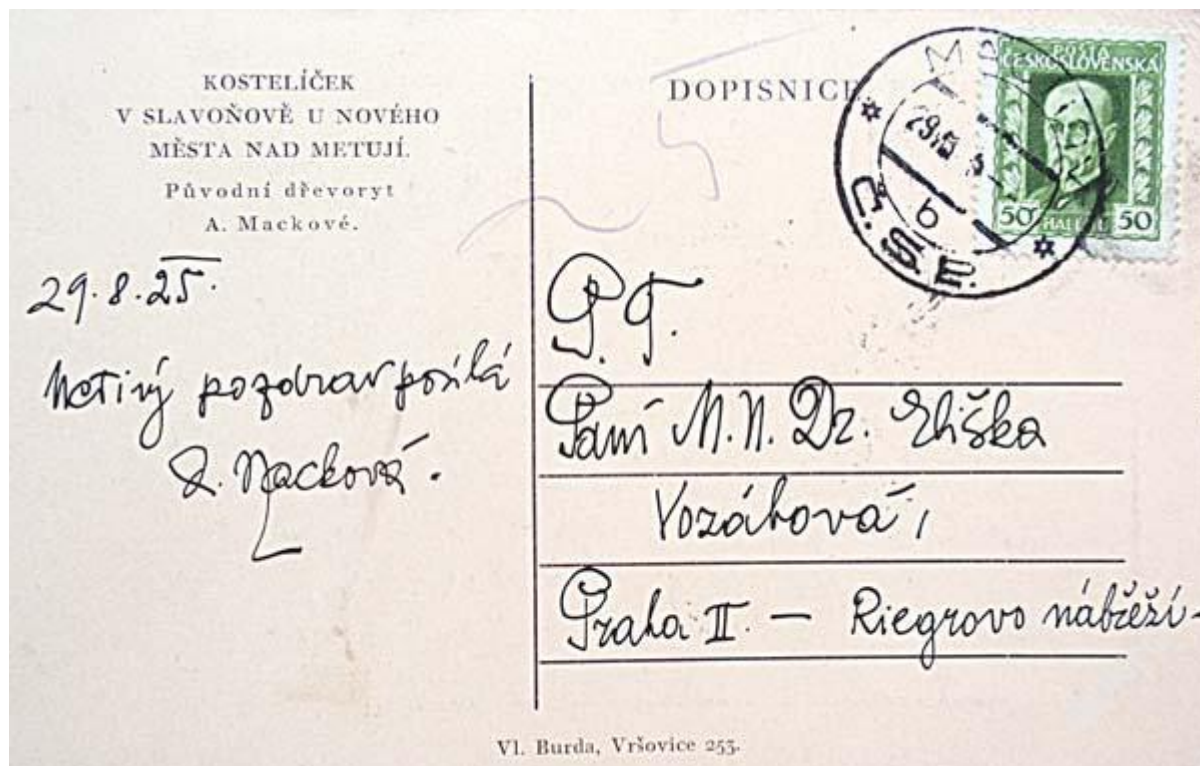 KOSTELÍČEK
V SLAVOŇOVĚ U NOVÉHO
MĚSTA NAD METUJÍ.
Původní dřevoryt
A. Mackové.
29.8.25.
pozdrav posílá
A. Macková.
DOPISNICE
POŠTA
ČESKOSLOVENSKÁ
50 HALÉŘŮ 50
b
Č.S.P.
P.T.
Paní M.N. Dr. Eliška
Vozábová,
Praha II. — Riegrovo nábřeží.
Vl. Burda, Vršovice 253.